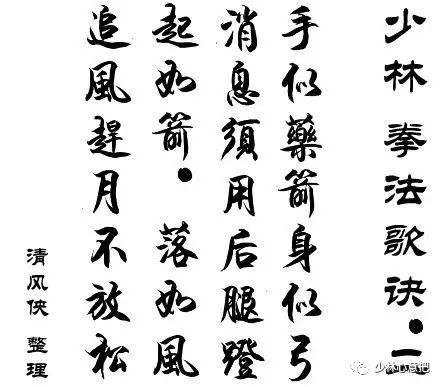 少林 拳法歌诀●二
手似藥箭身似弓
消息須用后腿蹬
起如箭● 落如風
追風趕月不放松
清风侠 整理
少林心意把